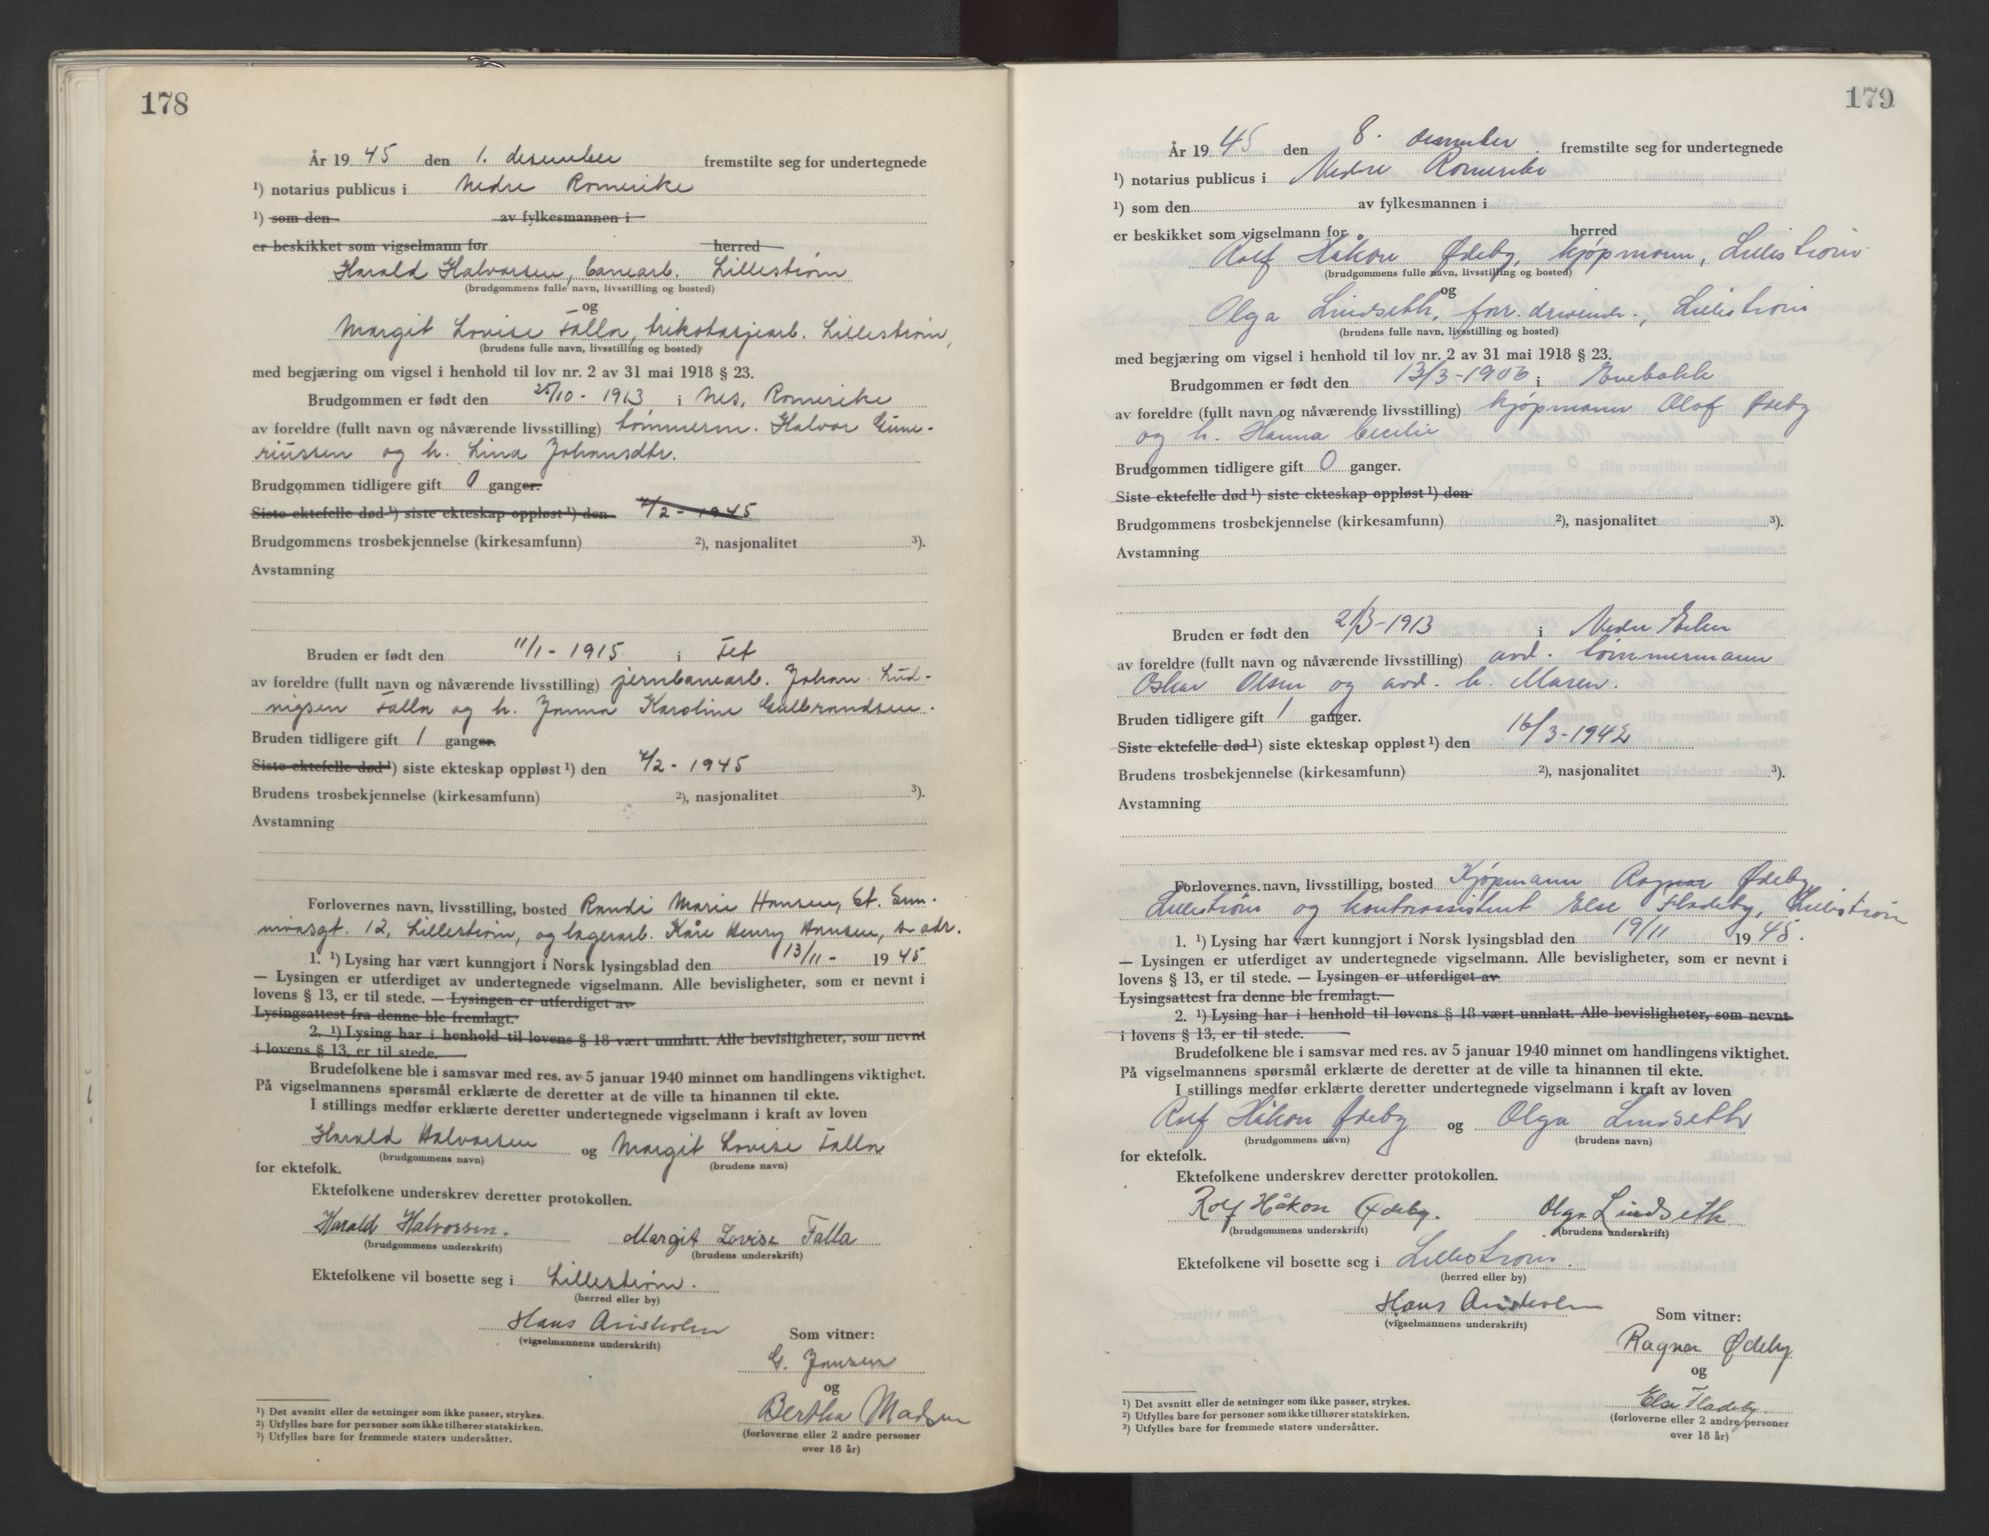 178
År 1945 den 1. desember fremstilte seg for undertegnede
¹) notarius publicus i Nedre Romerike
¹) som den av fylkesmannen i
er beskikket som vigselmann for herred
Harald Halvorsen, banearb. Lillestrøm
(brudgommens fulle navn, livsstilling og bosted)
og
Margit Lovise Falla, trikotasjearb. Lillestrøm,
(brudens fulle navn, livsstilling og bosted)
med begjæring om vigsel i henhold til lov nr. 2 av 31 mai 1918 § 23.
Brudgommen er født den 25/10 - 1913 i Nes, Romerike
av foreldre (fullt navn og nåværende livsstilling) tømmerm. Halvor Gune-
riussen og h. Lina Johansdtr.
Brudgommen tidligere gift 0 ganger.
Siste ektefelle død ¹) siste ekteskap oppløst ¹) den 7/2 - 1945
Brudgommens trosbekjennelse (kirkesamfunn) ²), nasjonalitet ³).
Avstamning
Bruden er født den 11/1 - 1915 i Fet
av foreldre (fullt navn og nåværende livsstilling) jernbanearb. Johan Lud-
vigsen Falla og h. Janna Karoline Gulbrandsen.
Bruden tidligere gift 1 ganger.
Siste ektefelle død ¹) siste ekteskap oppløst ¹) den 7/2 - 1945
Brudens trosbekjennelse (kirkesamfunn) ²), nasjonalitet ³).
Avstamning
Forlovernes navn, livsstilling, bosted Randi Marie Hansen, St. Sun-
nivasgt. 12, Lillestrøm, og lagerarb. Kåre Henry Hansen, s. adr.
1. ¹) Lysing har vært kunngjort i Norsk lysingsblad den 13/11 - 1945
— Lysingen er utferdiget av undertegnede vigselmann. Alle bevisligheter, som er nevnt i
lovens § 13, er til stede. — Lysingen er utferdiget av
Lysingsattest fra denne ble fremlagt.
2. ¹) Lysing har i henhold til lovens § 18 vært unnlatt. Alle bevisligheter, som nevnt
i lovens § 13, er til stede.
Brudefolkene ble i samsvar med res. av 5 januar 1940 minnet om handlingens viktighet.
På vigselmannens spørsmål erklærte de deretter at de ville ta hinannen til ekte.
I stillings medfør erklærte deretter undertegnede vigselmann i kraft av loven
Harald Halvorsen og Margit Lovise Falla
(brudgommens navn) (brudens navn)
for ektefolk.
Ektefolkene underskrev deretter protokollen.
Harald Halvorsen. Margit Lovise Falla
(brudgommens underskrift) (brudens underskrift)
Ektefolkene vil bosette seg i Lillestrøm.
(herred eller by)
Hans Arisholm
(vigselmannens underskrift)
Som vitner:
G. Jansen
og
Bertha Madsen
(forloverne eller 2 andre personer
over 18 år)
¹) Det avsnitt eller de setninger som ikke passer, strykes.
²) Utfylles bare for personer som ikke tilhører statskirken.
³) Utfylles bare for fremmede staters undersåtter.
179
År 1945 den 8. desember fremstilte seg for undertegnede
¹) notarius publicus i Nedre Romerike
¹) som den av fylkesmannen i
er beskikket som vigselmann for herred
Rolf Håkon Ødeby, kjøpmann, Lillestrøm
(brudgommens fulle navn, livsstilling og bosted)
og
Olga Lindseth, forr.drivende, Lillestrøm
(brudens fulle navn, livsstilling og bosted)
med begjæring om vigsel i henhold til lov nr. 2 av 31 mai 1918 § 23.
Brudgommen er født den 13/3 - 1906 i Enebakk
av foreldre (fullt navn og nåværende livsstilling) kjøpmann Olof Ødeby
og h. Hanna Cecilie
Brudgommen tidligere gift 0 ganger.
Siste ektefelle død ¹) siste ekteskap oppløst ¹) den
Brudgommens trosbekjennelse (kirkesamfunn) ²), nasjonalitet ³).
Avstamning
Bruden er født den 21/3 - 1913 i Nedre Eiker
av foreldre (fullt navn og nåværende livsstilling) avd. tømmermann
Oskar Olsen og avd. h. Maren.
Bruden tidligere gift 1 ganger.
Siste ektefelle død ¹) siste ekteskap oppløst ¹) den 16/3 - 1942
Brudens trosbekjennelse (kirkesamfunn) ²), nasjonalitet ³).
Avstamning
Forlovernes navn, livsstilling, bosted Kjøpmann Ragnar Ødeby,
Lillestrøm og kontorassistent Else Fladeby, Lillestrøm
1. ¹) Lysing har vært kunngjort i Norsk lysingsblad den 19/11 1945.
— Lysingen er utferdiget av undertegnede vigselmann. Alle bevisligheter, som er nevnt i
lovens § 13, er til stede. — Lysingen er utferdiget av
Lysingsattest fra denne ble fremlagt.—
2. ¹) Lysing har i henhold til lovens § 18 vært unnlatt. Alle bevisligheter, som nevnt
i lovens § 13, er til stede.
Brudefolkene ble i samsvar med res. av 5 januar 1940 minnet om handlingens viktighet.
På vigselmannens spørsmål erklærte de deretter at de ville ta hinannen til ekte.
I stillings medfør erklærte deretter undertegnede vigselmann i kraft av loven
Rolf Håkon Ødeby og Olga Lindseth
(brudgommens navn) (brudens navn)
for ektefolk.
Ektefolkene underskrev deretter protokollen.
Rolf Håkon Ødeby. Olga Lindseth
(brudgommens underskrift) (brudens underskrift)
Ektefolkene vil bosette seg i Lillestrøm.
(herred eller by)
Hans Arisholm
(vigselmannens underskrift)
Som vitner:
Ragnar Ødeby
og
Else Fladeby.
(forloverne eller 2 andre personer
over 18 år)
¹) Det avsnitt eller de setninger som ikke passer, strykes.
²) Utfylles bare for personer som ikke tilhører statskirken.
³) Utfylles bare for fremmede staters undersåtter.